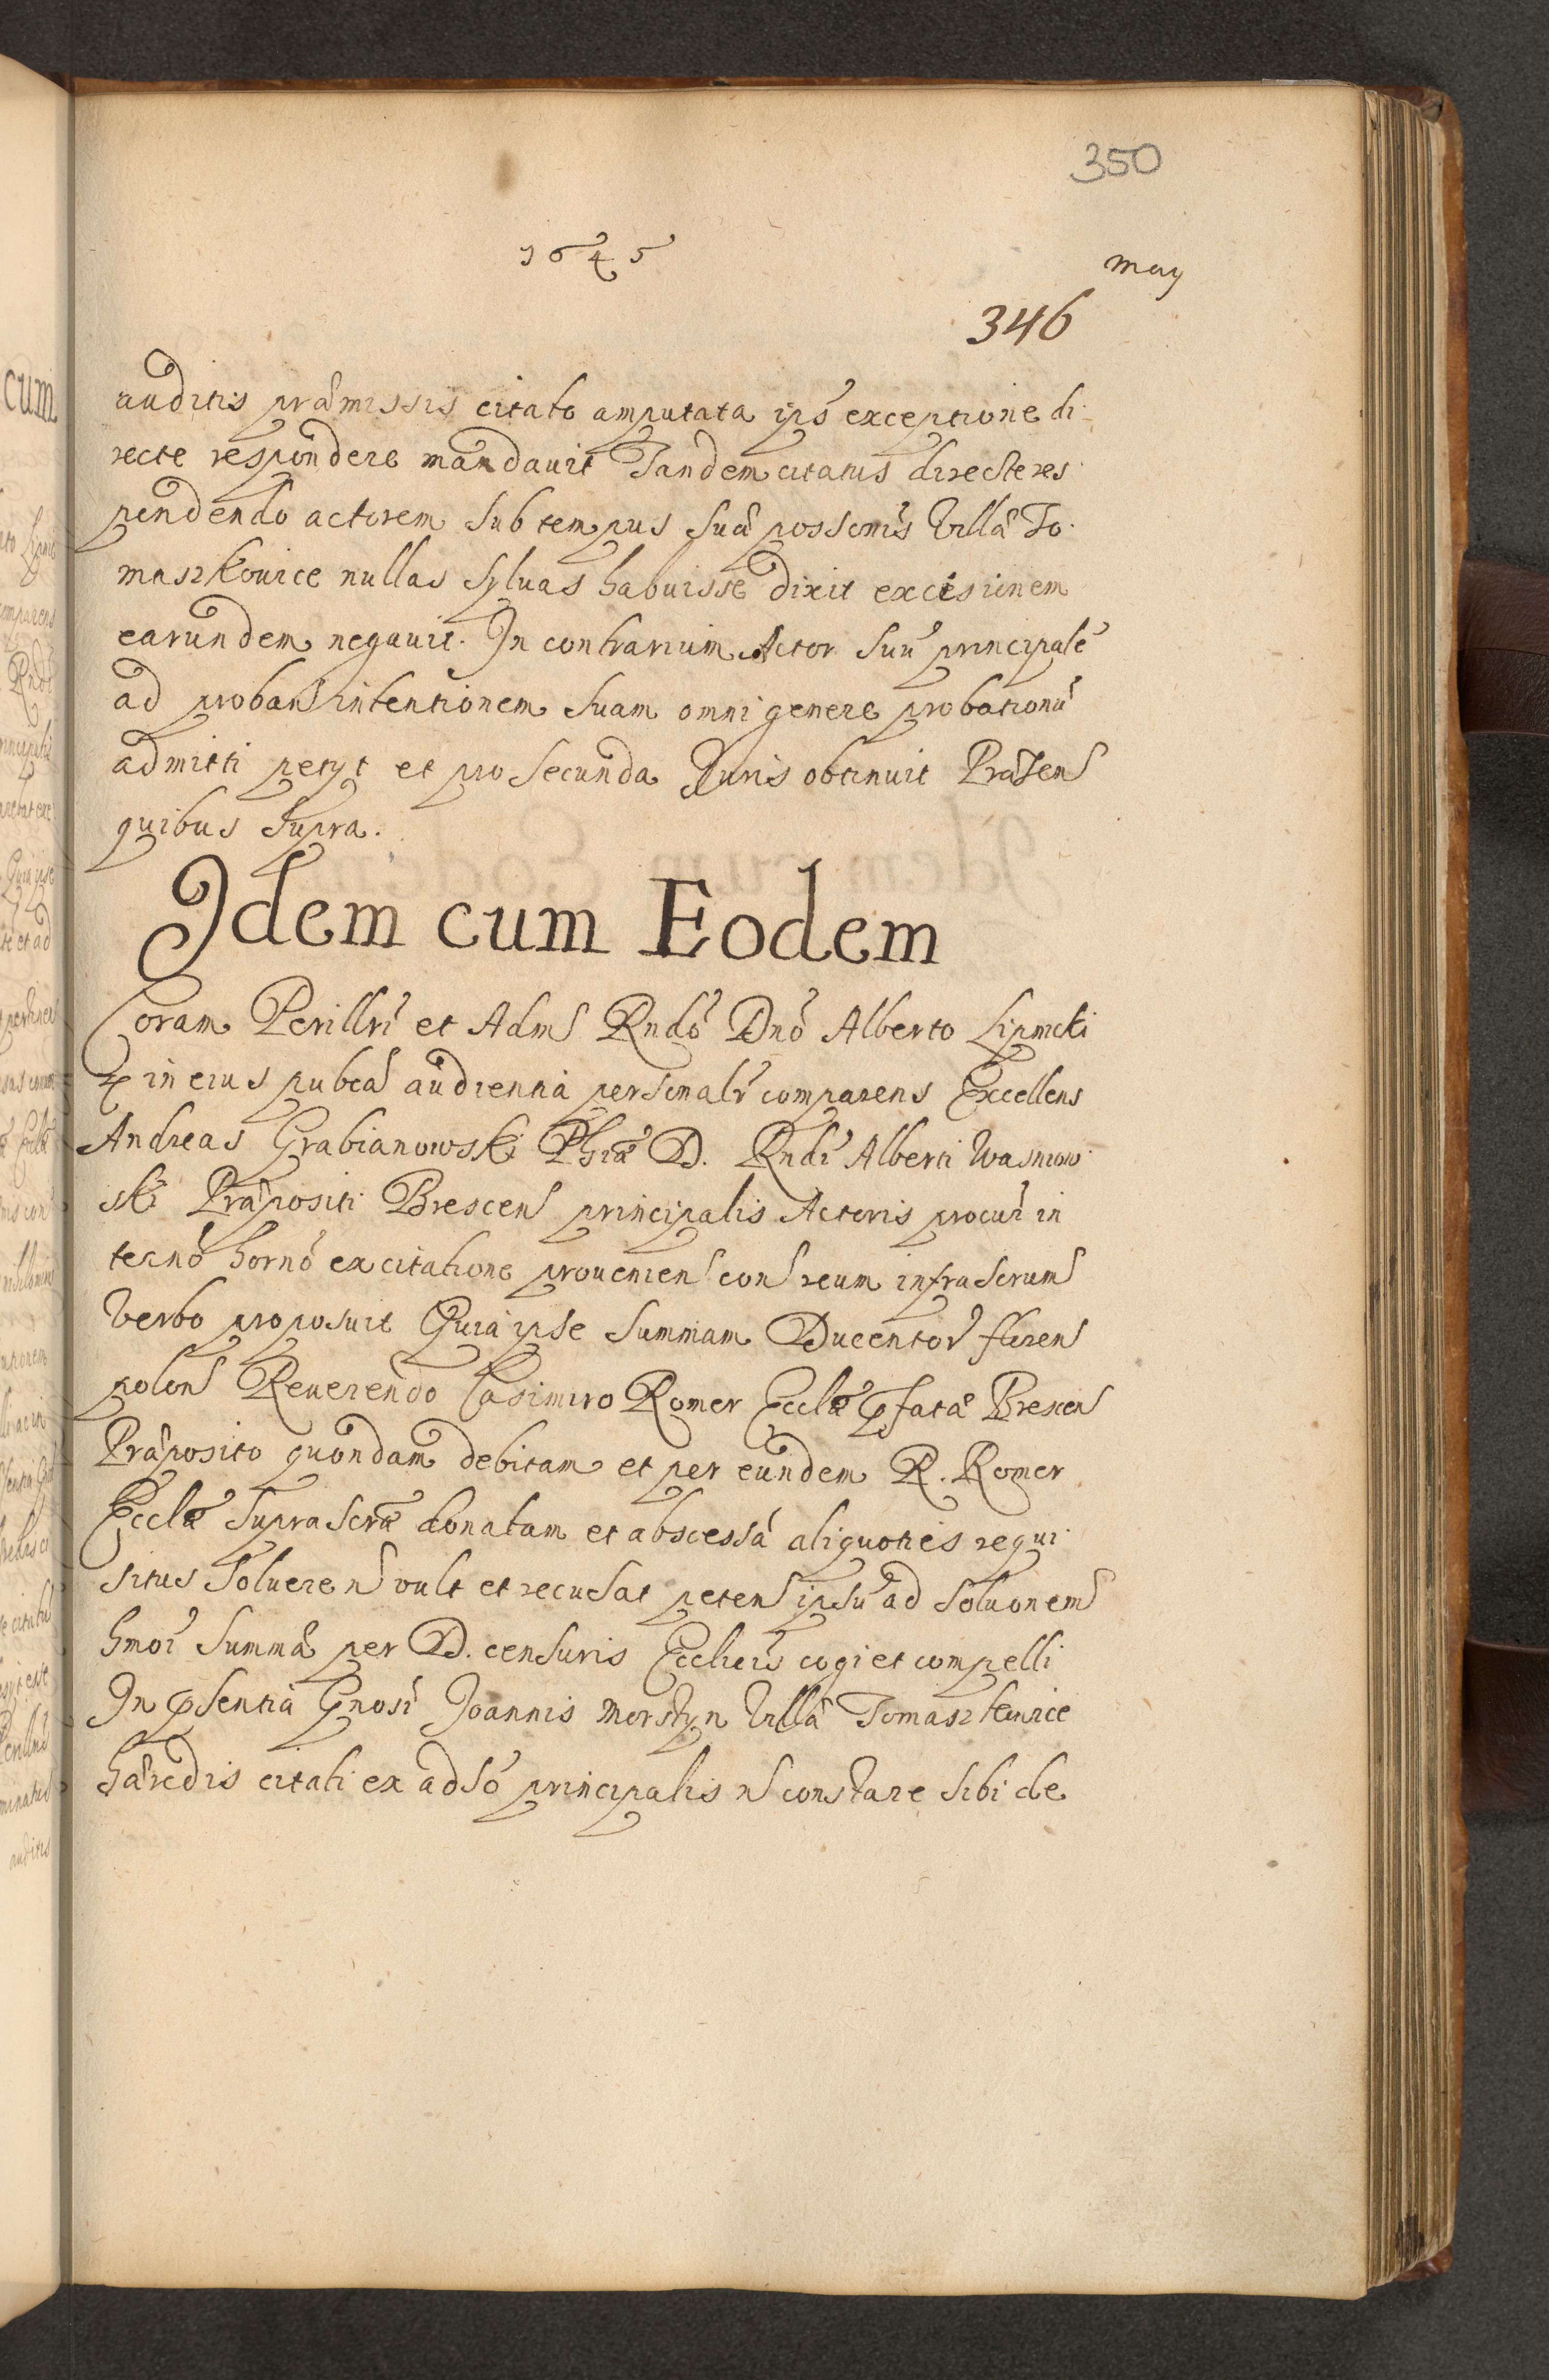 350
1645
may
346
auditis præmissis citato amputata ips̃o exceptione di-
recte respondere mandauit Tandem citatus directe res-
pondendo actorem sub tempus suæ possonis̃ Villæ To-
maszkouice nullas syluas habuisse dixit excisionem
earundem negauit. In contrarium Actor suũ principalẽ
ad proban̄ intentionem suam omni genere probationũ
admitti petyt et pro secunda Juris obtinuit Præsen̄
quibus supra.
Idem cum Eodem
Coram Perillri͂ et Adm̄ Rndõ Dnõ Alberto Lipnicki
in eius pubca͂ audientia personalr͂ comparens Excellens
Andreas Grabianowski Phiæ͂ D. Rndi͂ Alberti Wasniow-
ski Præpositi Brescen̄ principalis Actoris procur͂ in
termõ hornõ ex citatione prouenien̄ con̄ reum infrascrum̄
Verbo proposuit Quia ipse summam Ducentor͂ floren̄
polon̄ Reuerendo Casimiro Romer Ecclæ͂ pfatæ Brescen̄
Præposito quondam debitam et per eundem R. Romer
Ecclæ͂ suprascræ͂ donatam et abscessã aliquoties requi-
situs soluere n̄ vult et recusat peten̄ ipsũ ad soluonem̄
hmoi͂ summæ per D. censuris Ecclicis͂ cogi et compelli
In psentia Gnosi͂ Joannis Morstyn Villæ Tomaszkouice
hæredis citati ex adsõ principalis n̄ constare sibi de